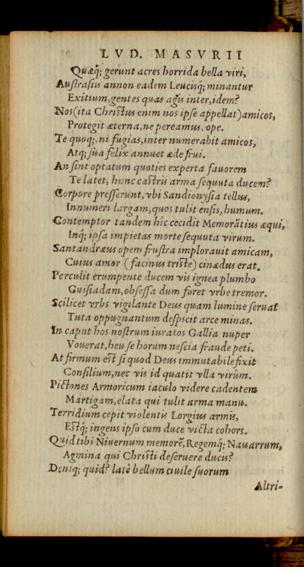 LVD. MASVRII
Quæq; gerunt acres horrida bella viri,
Austrasiis annon eadem Leucisq; minantur
Exitium, gentes quas agis inter, idem?
Nos (ita Christus enim nos ipse appellat) amicos,
Protegit æterna, ne pereamus, ope.
Te quoq;, ni fugias, inter numerabit amicos,
Atq; sua felix annuet æde frui.
An sint optatum quoties experta fauorem
Te latet, hunc castris arma sequuta ducem?
Corpore presserunt, vbi Sandionysia tellus,
Innumeri largam, quos tulit ensis, humum.
Contemptor tandem hic cecidit Memorātius æqui,
Inq; ipsa impietas morte sequuta virum.
Santandræus opem frustra implorauit amicam,
Cuius amor (facinus triste) cinædus erat.
Perculit erumpente ducem vis ignea plumbo
Guisiadam, obsessa dum foret vrbe tremor.
Scilicet vrbs vigilante Deus quam lumine seruat
Tuta oppugnantum despicit arce minas.
In caput hos nostrum iuratos Gallia nuper
Vouerat, heu se horum nescia fraude peti.
At firmum est si quod Deus immutabile fixit
Consilium, nec vis id quatit vlla virûm.
Pictones Armoricum iaculo videre cadentem
Martigam, elata qui tulit arma manu.
Terridium cepit violentis Lorgius armis,
Estq; ingens ipso cum duce victa cohors.
Quid tibi Niuernum memorē, Regemq; Nauarrum,
Agmina qui Christi deseruere ducis?
Deniq; quid? latè bellum ciuile suorum
Altri-